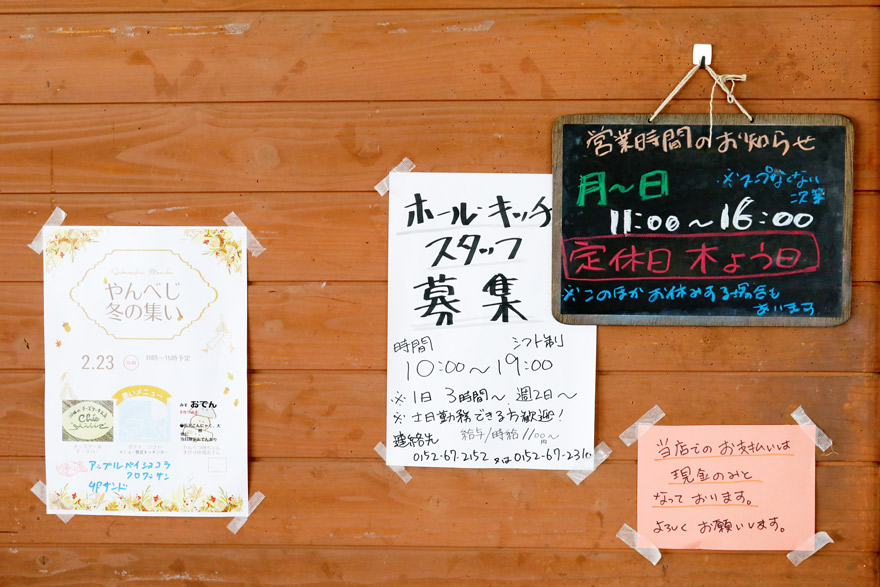 やんべじ
冬の集い
2.23
11時～15時予定
おでん
アップルパイ
クロワッサン
ホール・キッチ
スタッフ
募集
時間 シフト制
10:00～19:00
※1日 3時間～ 週2日～
※土日勤務できるお歓迎!
給与/時給1100円～
連絡先
0152-67-2152 又は0152-67-231
営業時間のお知らせ
月～日
※スープなくなり
次第
11:00～16:00
定休日 木よう日
※このほかお休みする場合も
あります
当店でのお支払いは
現金のみと
なっております。
よろしくお願いします。